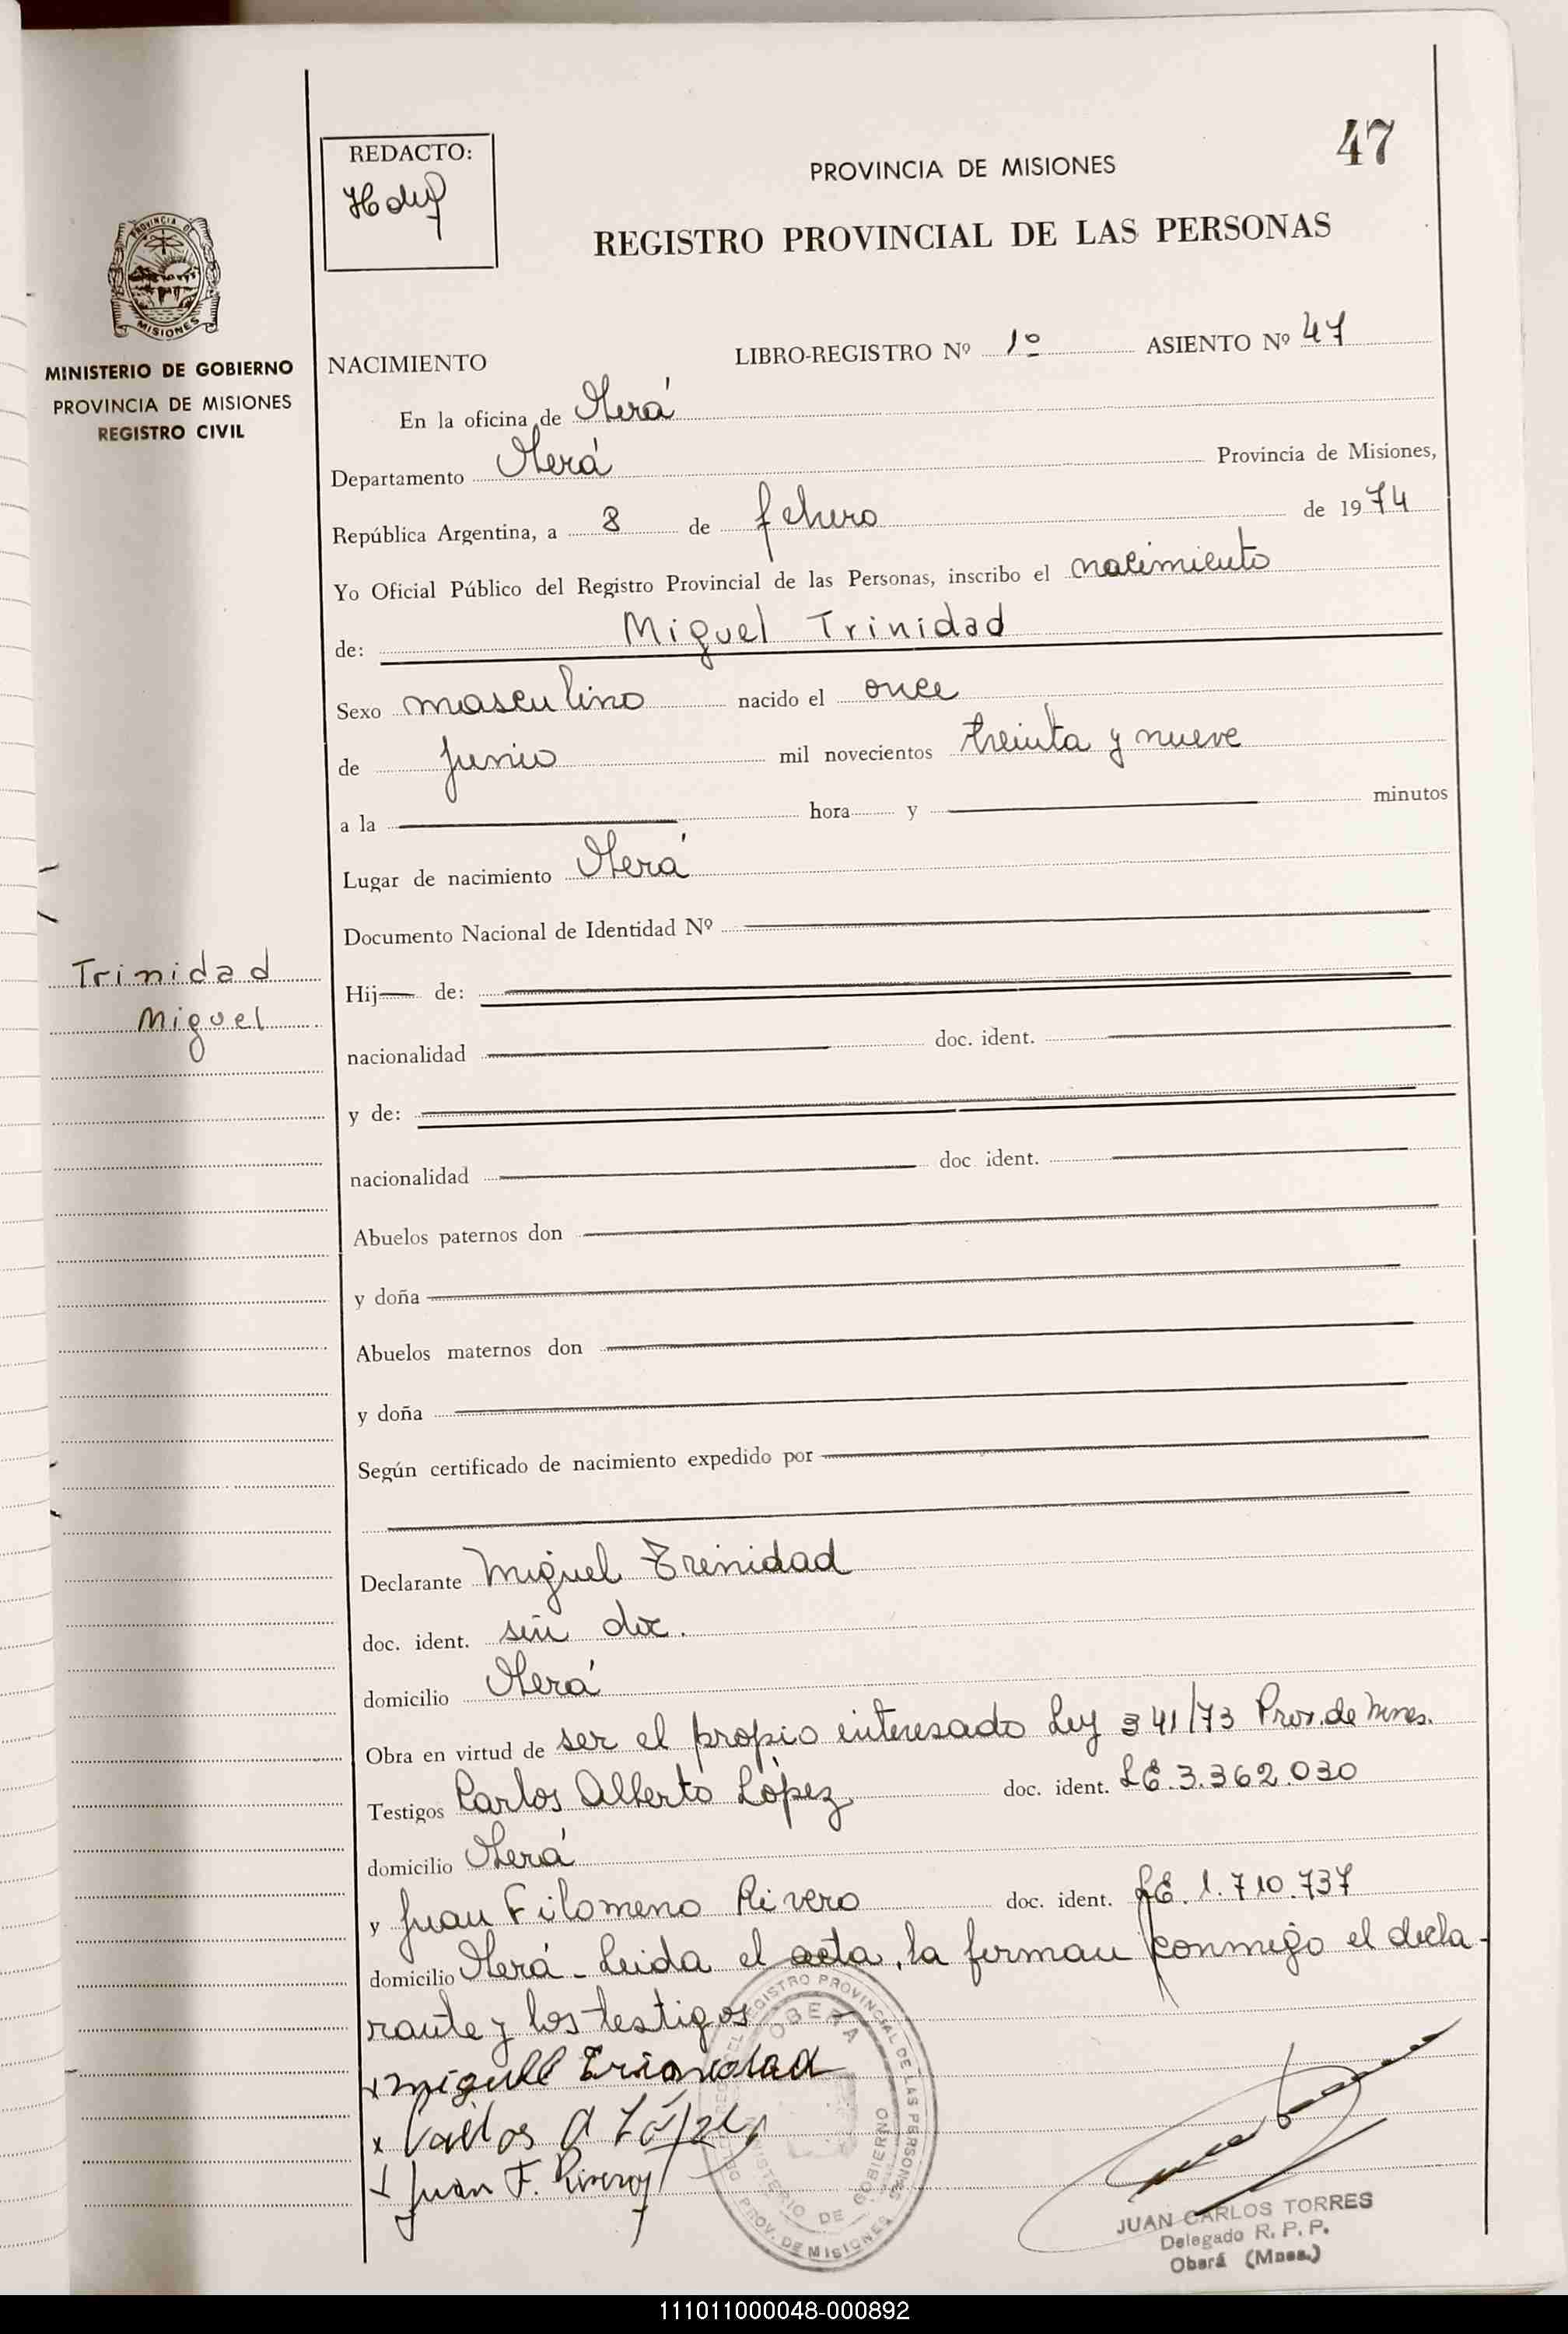 47
REDACTO:
PROVINCIA DE MISIONES
REGISTRO PROVINCIAL DE LAS PERSONAS
PROVINCIA DE
MISIONES
MINISTERIO DE GOBIERNO
PROVINCIA DE MISIONES
REGISTRO CIVIL
NACIMIENTO LIBRO-REGISTRO Nº 1º ASIENTO Nº 47
En la oficina de Oberá
Departamento Oberá Provincia de Misiones,
República Argentina, a 8 de febrero de 1974
Yo Oficial Público del Registro Provincial de las Personas, inscribo el nacimiento
de: Miguel Trinidad
Sexo masculino nacido el once
de junio mil novecientos treinta y nueve
a la hora y minutos
Lugar de nacimiento Oberá
Documento Nacional de Identidad Nº
Trinidad
Miguel
Hij de:
nacionalidad doc. ident.
y de:
nacionalidad doc ident.
Abuelos paternos don
y doña
Abuelos maternos don
y doña
Según certificado de nacimiento expedido por
Declarante Miguel Trinidad
doc. ident. sin doc.
domicilio Oberá
Obra en virtud de ser el propio interesado Ley 341/73 Prov. de Mnes.
Testigos Carlos Alberto López doc. ident. LE. 3.362.030
domicilio Oberá
y Juan Filomeno Rivero doc. ident. LE. 1.710.737
domicilio Oberá - Leida el acta, la firman conmigo el decla-
rante y los testigos
x miguel Trinidad
x Carlos A López
x Juan F. Rivero
REGISTRO PROVINCIAL DE LAS PERSONAS
OBERA
MINISTERIO DE GOBIERNO
PROV. DE MISIONES
JUAN CARLOS TORRES
Delegado R. P. P.
Oberá (Mnes.)
111011000048-000892